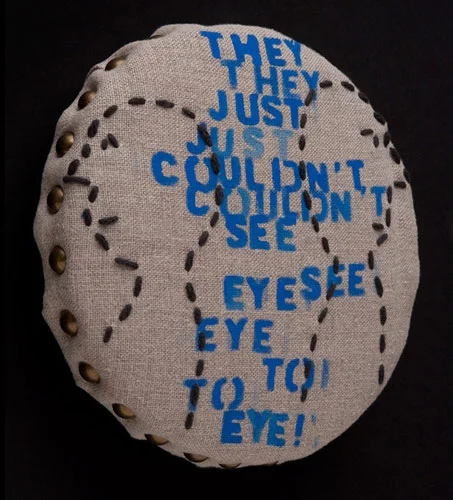 THEY
THEY
JUST
JUST
COULDN'T
COULDN'T
SEE
EYE SEE
EYE
TO
TO
EYE!